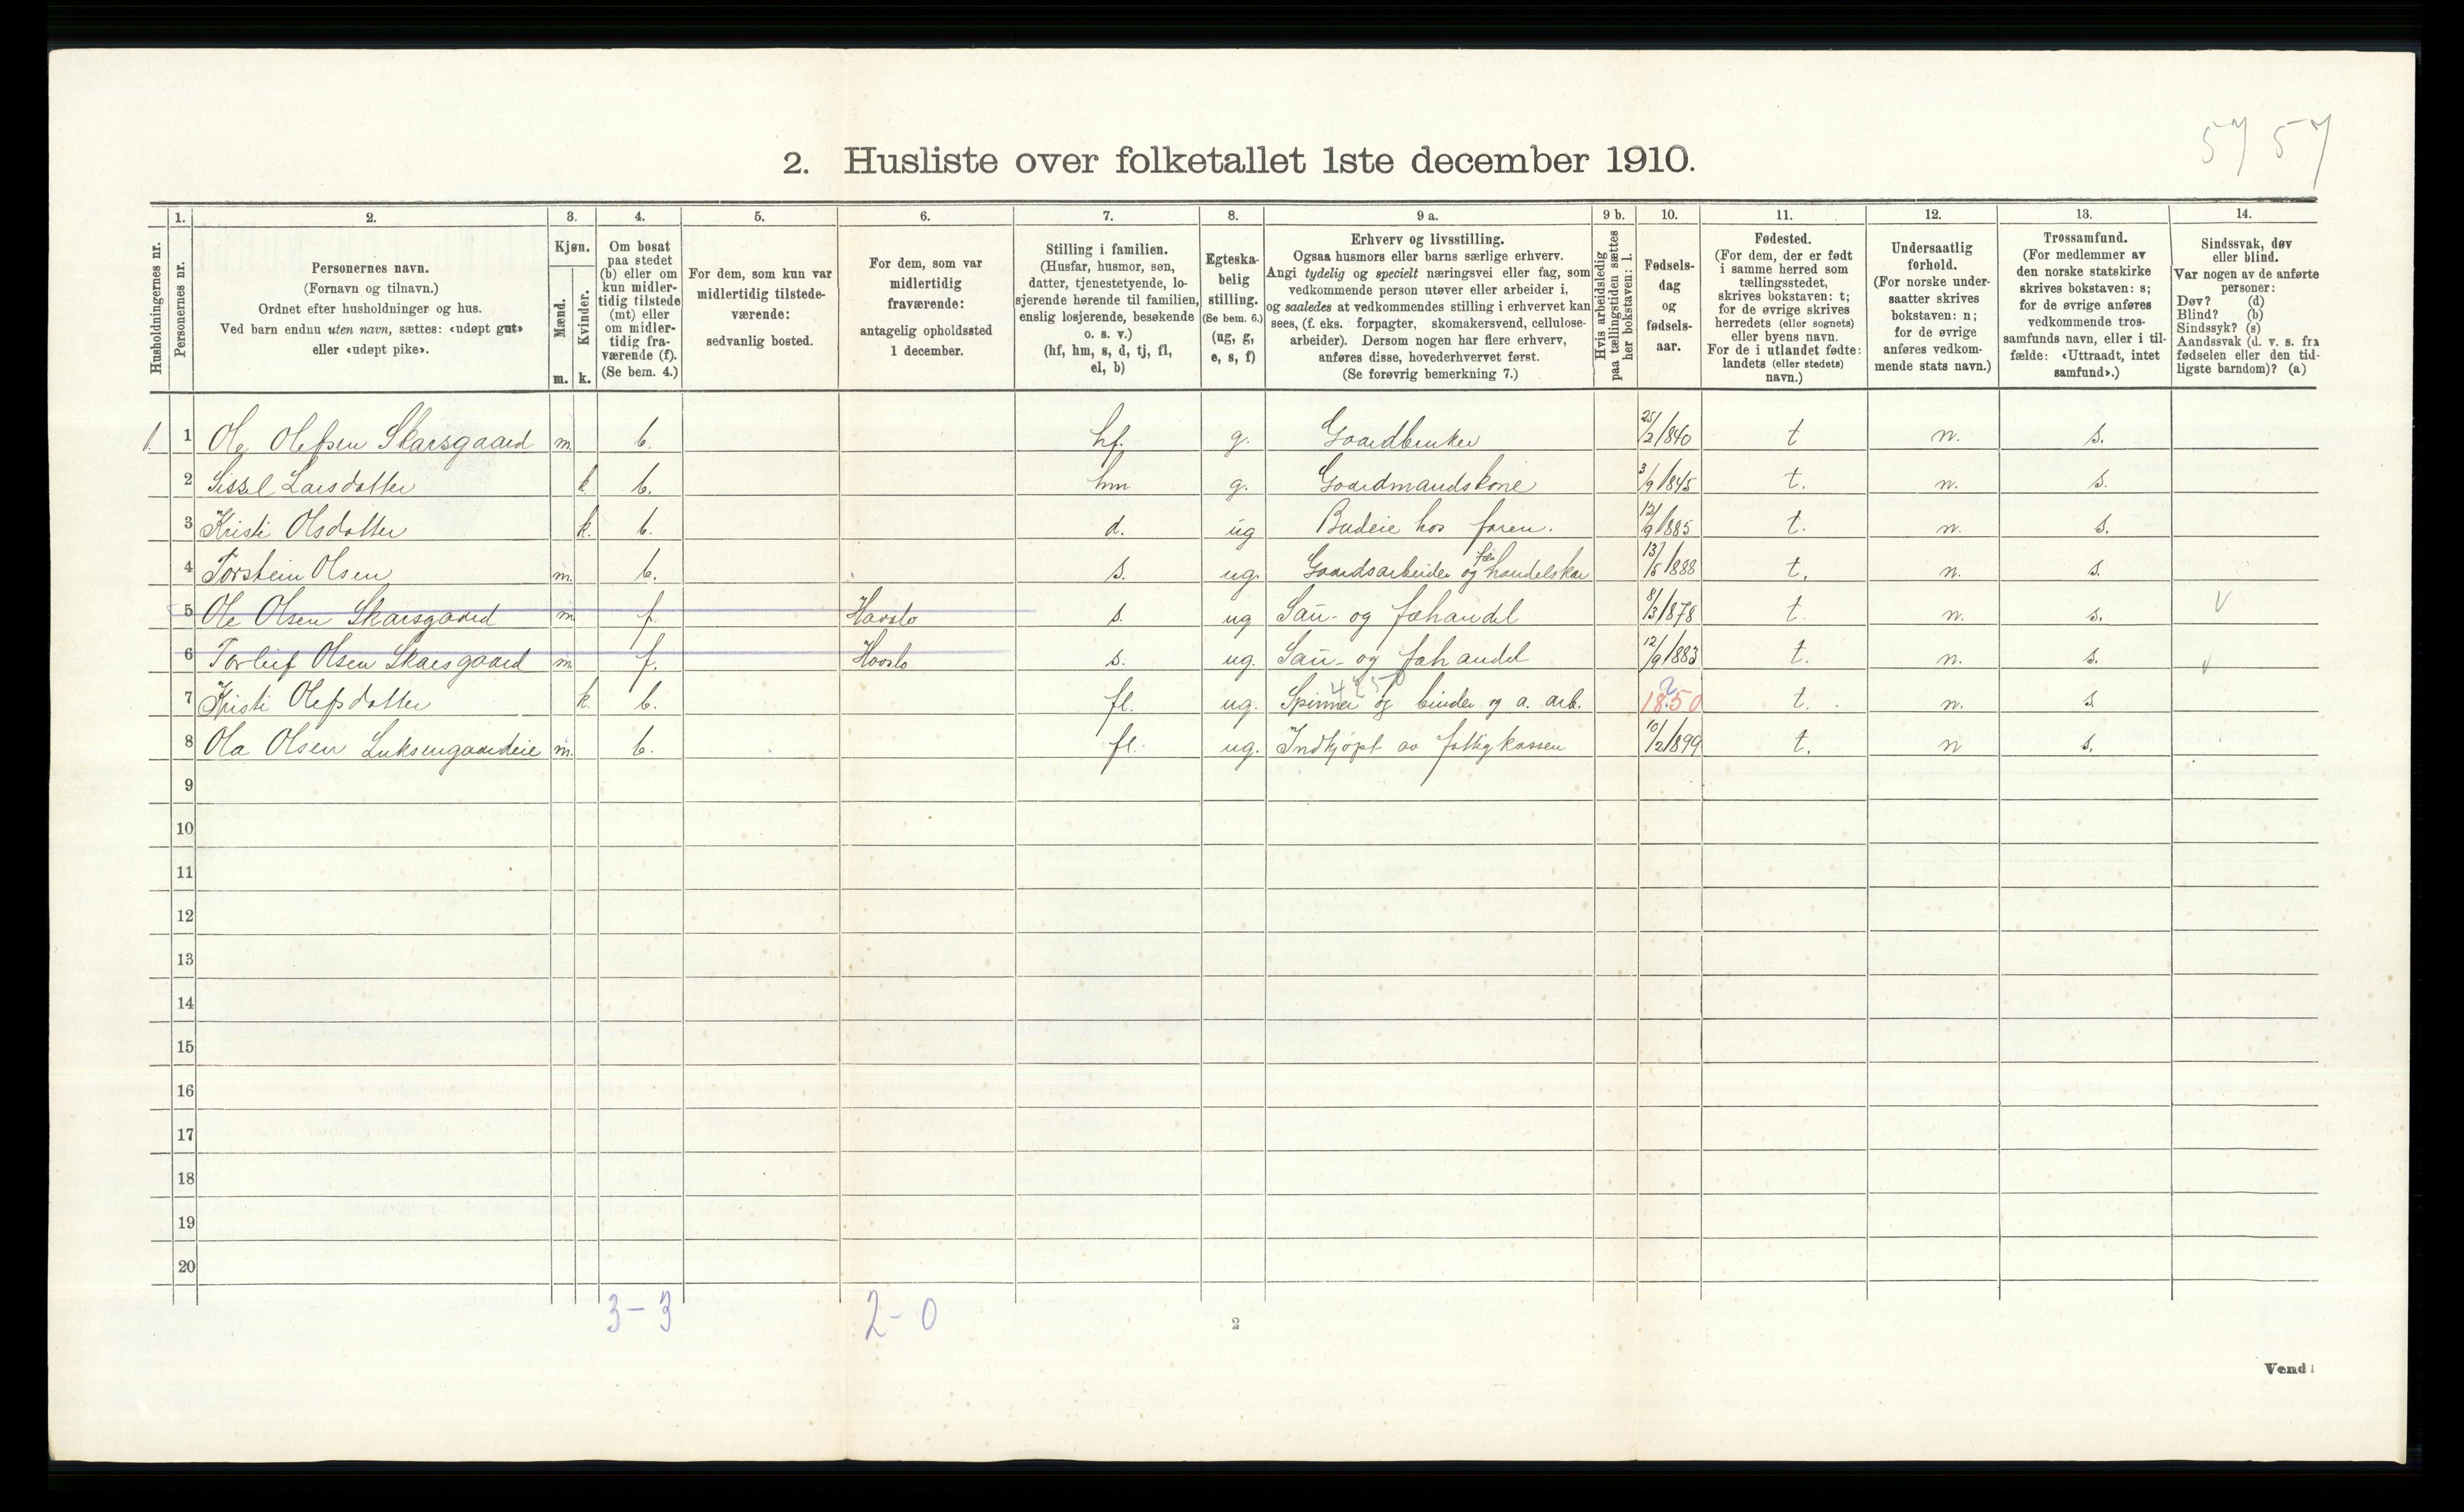 57 57
2. Husliste over folketallet 1ste december 1910.
Husholdningernes nr.
1. Personernes nr.
2. Personernes navn.
(Fornavn og tilnavn.)
Ordnet efter husholdninger og hus.
Ved barn endnu uten navn, sættes: «udøpt gut»
eller «udøpt pike».
3. Kjøn.
Mænd. m.
Kvinder. k.
4. Om bosat
paa stedet
(b) eller om
kun midler-
tidig tilstede
(mt) eller
om midler-
tidig fra-
værende (f).
(Se bem. 4.)
5. For dem, som kun var
midlertidig tilstede-
værende:
sedvanlig bosted.
6. For dem, som var
midlertidig
fraværende:
antagelig opholdssted
1 december.
7. Stilling i familien.
(Husfar, husmor, søn,
datter, tjenestetyende, lo-
sjerende hørende til familien,
enslig losjerende, besøkende
o. s. v.)
(hf, hm, s, d, tj, fl,
el, b)
8. Egteska-
belig
stilling.
(Se bem. 6.)
(ug, g,
e, s, f)
9 a. Erhverv og livsstilling.
Ogsaa husmors eller barns særlige erhverv.
Angi tydelig og specielt næringsvei eller fag, som
vedkommende person utøver eller arbeider i,
og saaledes at vedkommendes stilling i erhvervet kan
sees, (f. eks. forpagter, skomakersvend, cellulose-
arbeider). Dersom nogen har flere erhverv,
anføres disse, hovederhvervet først.
(Se forøvrig bemerkning 7.)
9 b. Hvis arbeidsledig
paa tællingstiden sættes
her bokstaven: l.
10. Fødsels-
dag
og
fødsels-
aar.
11. Fødested.
(For dem, der er født
i samme herred som
tællingsstedet,
skrives bokstaven: t;
for de øvrige skrives
herredets (eller sognets)
eller byens navn.
For de i utlandet fødte:
landets (eller stedets)
navn.)
12. Undersaatlig
forhold.
(For norske under-
saatter skrives
bokstaven: n;
for de øvrige
anføres vedkom-
mende stats navn.)
13. Trossamfund.
(For medlemmer av
den norske statskirke
skrives bokstaven: s;
for de øvrige anføres
vedkommende tros-
samfunds navn, eller i til-
fælde: «Uttraadt, intet
samfund».)
14. Sindssvak, døv
eller blind.
Var nogen av de anførte
personer:
Døv? (d)
Blind? (b)
Sindssyk? (s)
Aandssvak (d. v. s. fra
fødselen eller den tid-
ligste barndom)? (a)
1. 1 Ole Olefsen Skarsgaard m. b. hf. g. Gaardbruker 25/2/840 t n. s.
2 Sissel Larsdatter k b. hm g. Gaardmandskone 3/9/845 t. n. s.
3 Kristi Olsdatter k. b. d. ug Budeie hos faren. 12/9/885 t. n. s.
4 Torstein Olsen m. b. s. ug. Gaardsarbeider og fæhandelskar 13/5/888 t. n. s.
5 Ole Olsen Skarsgaard m f. Havslo s. ug Sau- og fæhandel 8/3/878 t. n. s. V
6 Torleif Olsen Skarsgaard m. f. Havslo s. ug. Sau- og fæhandel 12/9/883 t. n. s. V
7 Kristi Olefsdatter k. b. fl. ug. Spinner og binder og a. arb. 1850 ? t. n. s.
8 Ola Olsen Luksengaardeie m. b. fl. ug. Indkjøpt av fattigkassen 10/2/899 t. n s.
9
10
11
12
13
14
15
16
17
18
19
20
3-3 2-0
2
Vend!